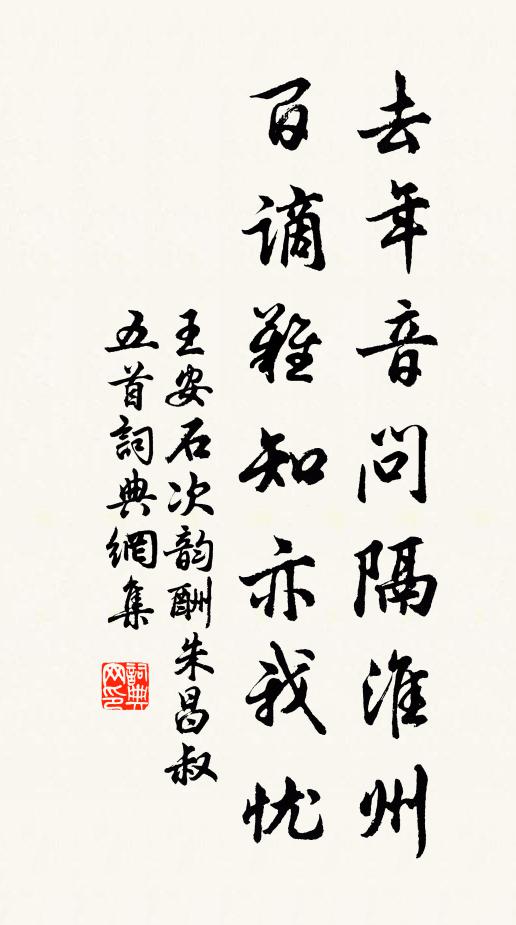 去年音问隔淮州
百谪難知亦我忧
王安石次韵酬朱昌叔
五首詞典網集
詞典
网印